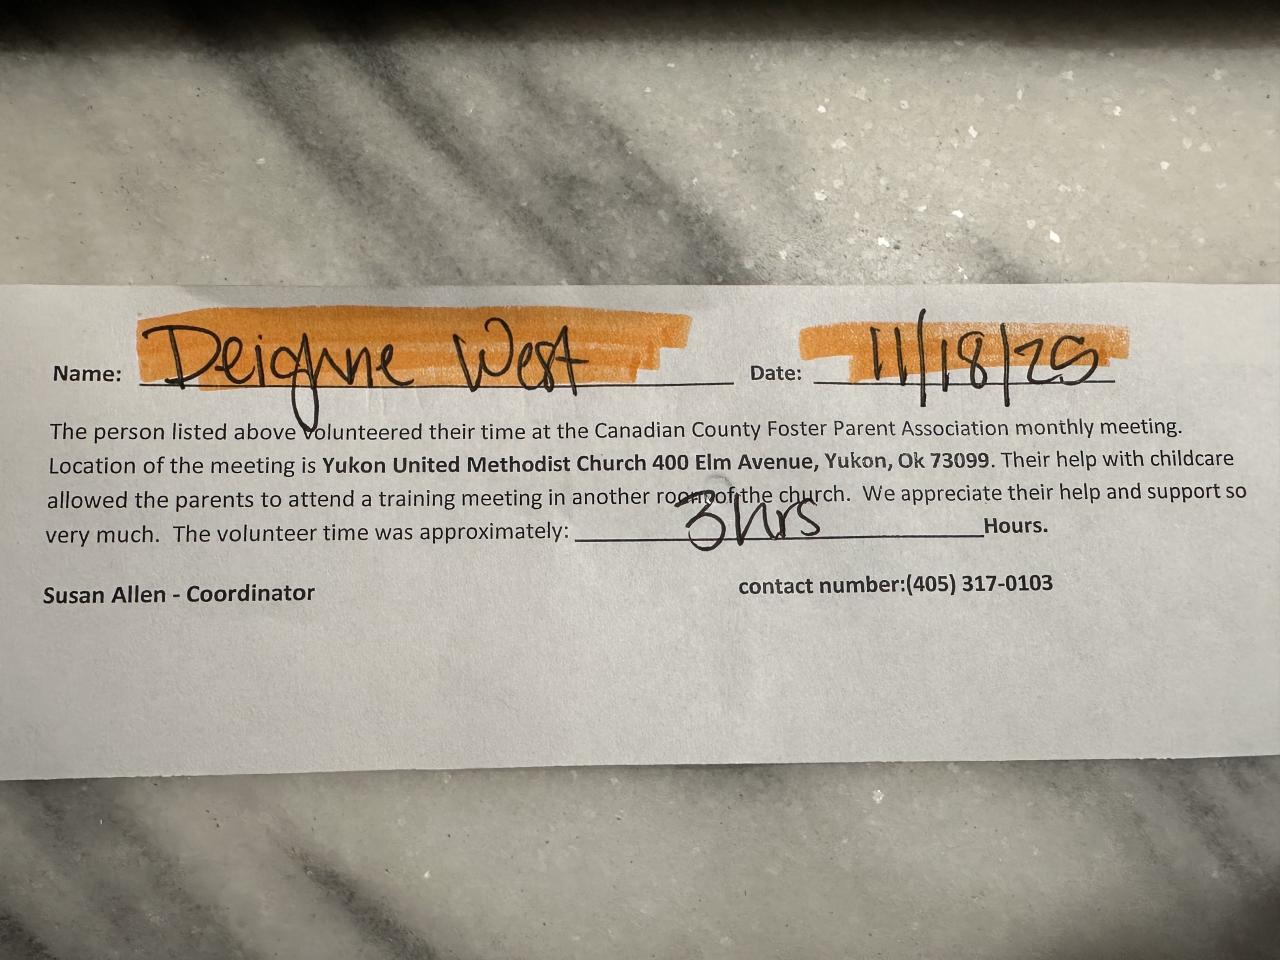 Name: West Date: 11/18/25
The person listed above volunteered their time at the Canadian County Foster Parent Association monthly meeting.
Location of the meeting is Yukon United Methodist Church 400 Elm Avenue, Yukon, Ok 73099. Their help with childcare
allowed the parents to attend a training meeting in another room of the church. We appreciate their help and support so
very much. The volunteer time was approximately: 3 hrs Hours.
Susan Allen - Coordinator contact number:(405) 317-0103